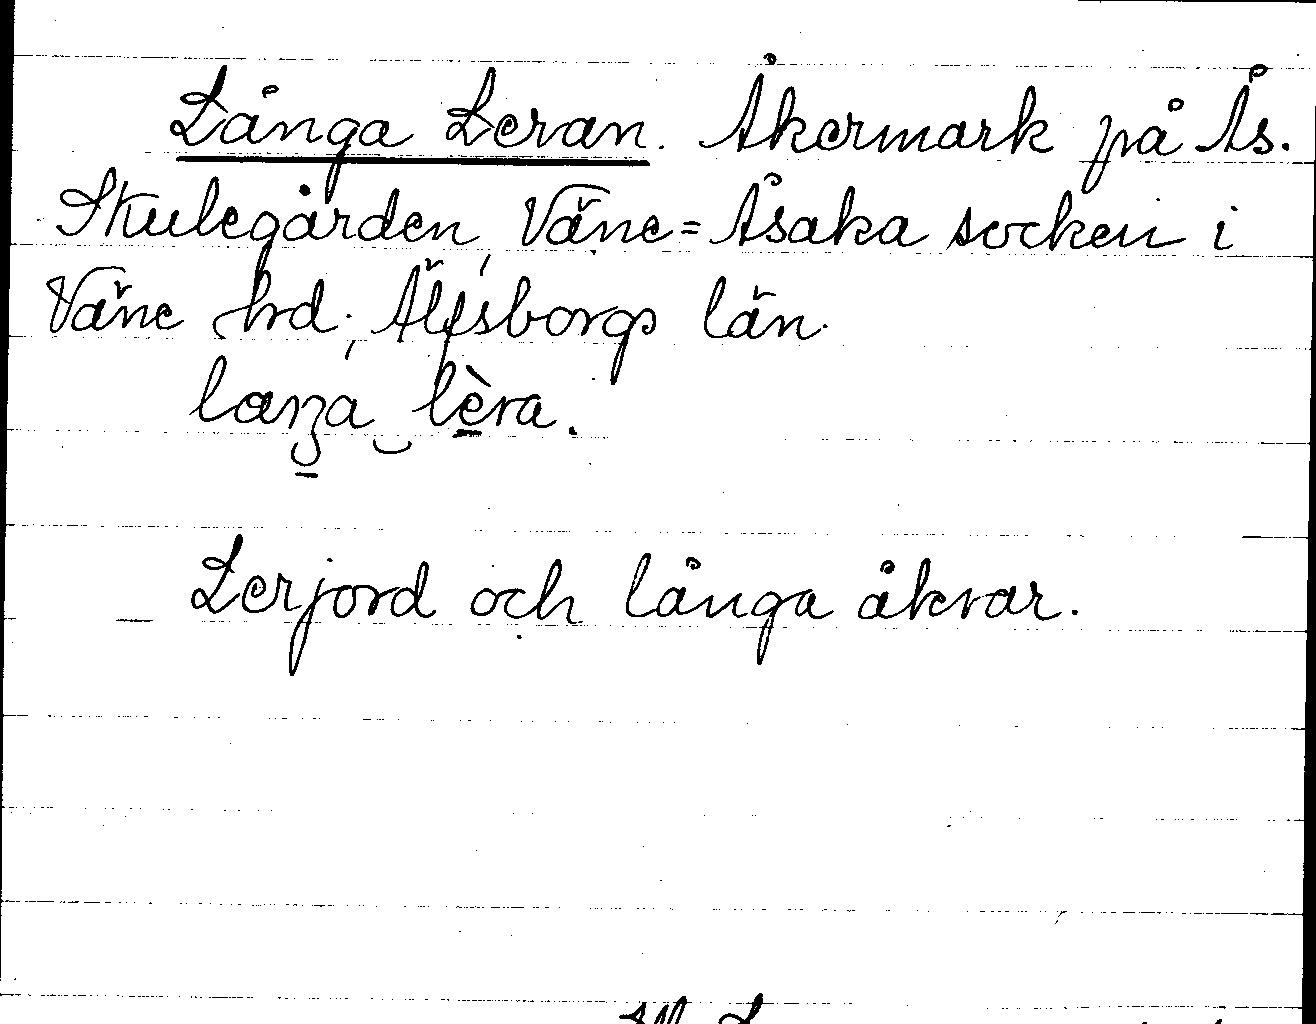 Långa Leran. Åkermark på Ås.
Skulegården, Väne=Åsaka socken i
Väne hrd, Älfsborgs län.
lèra.
Lerjord och långa åkrar.